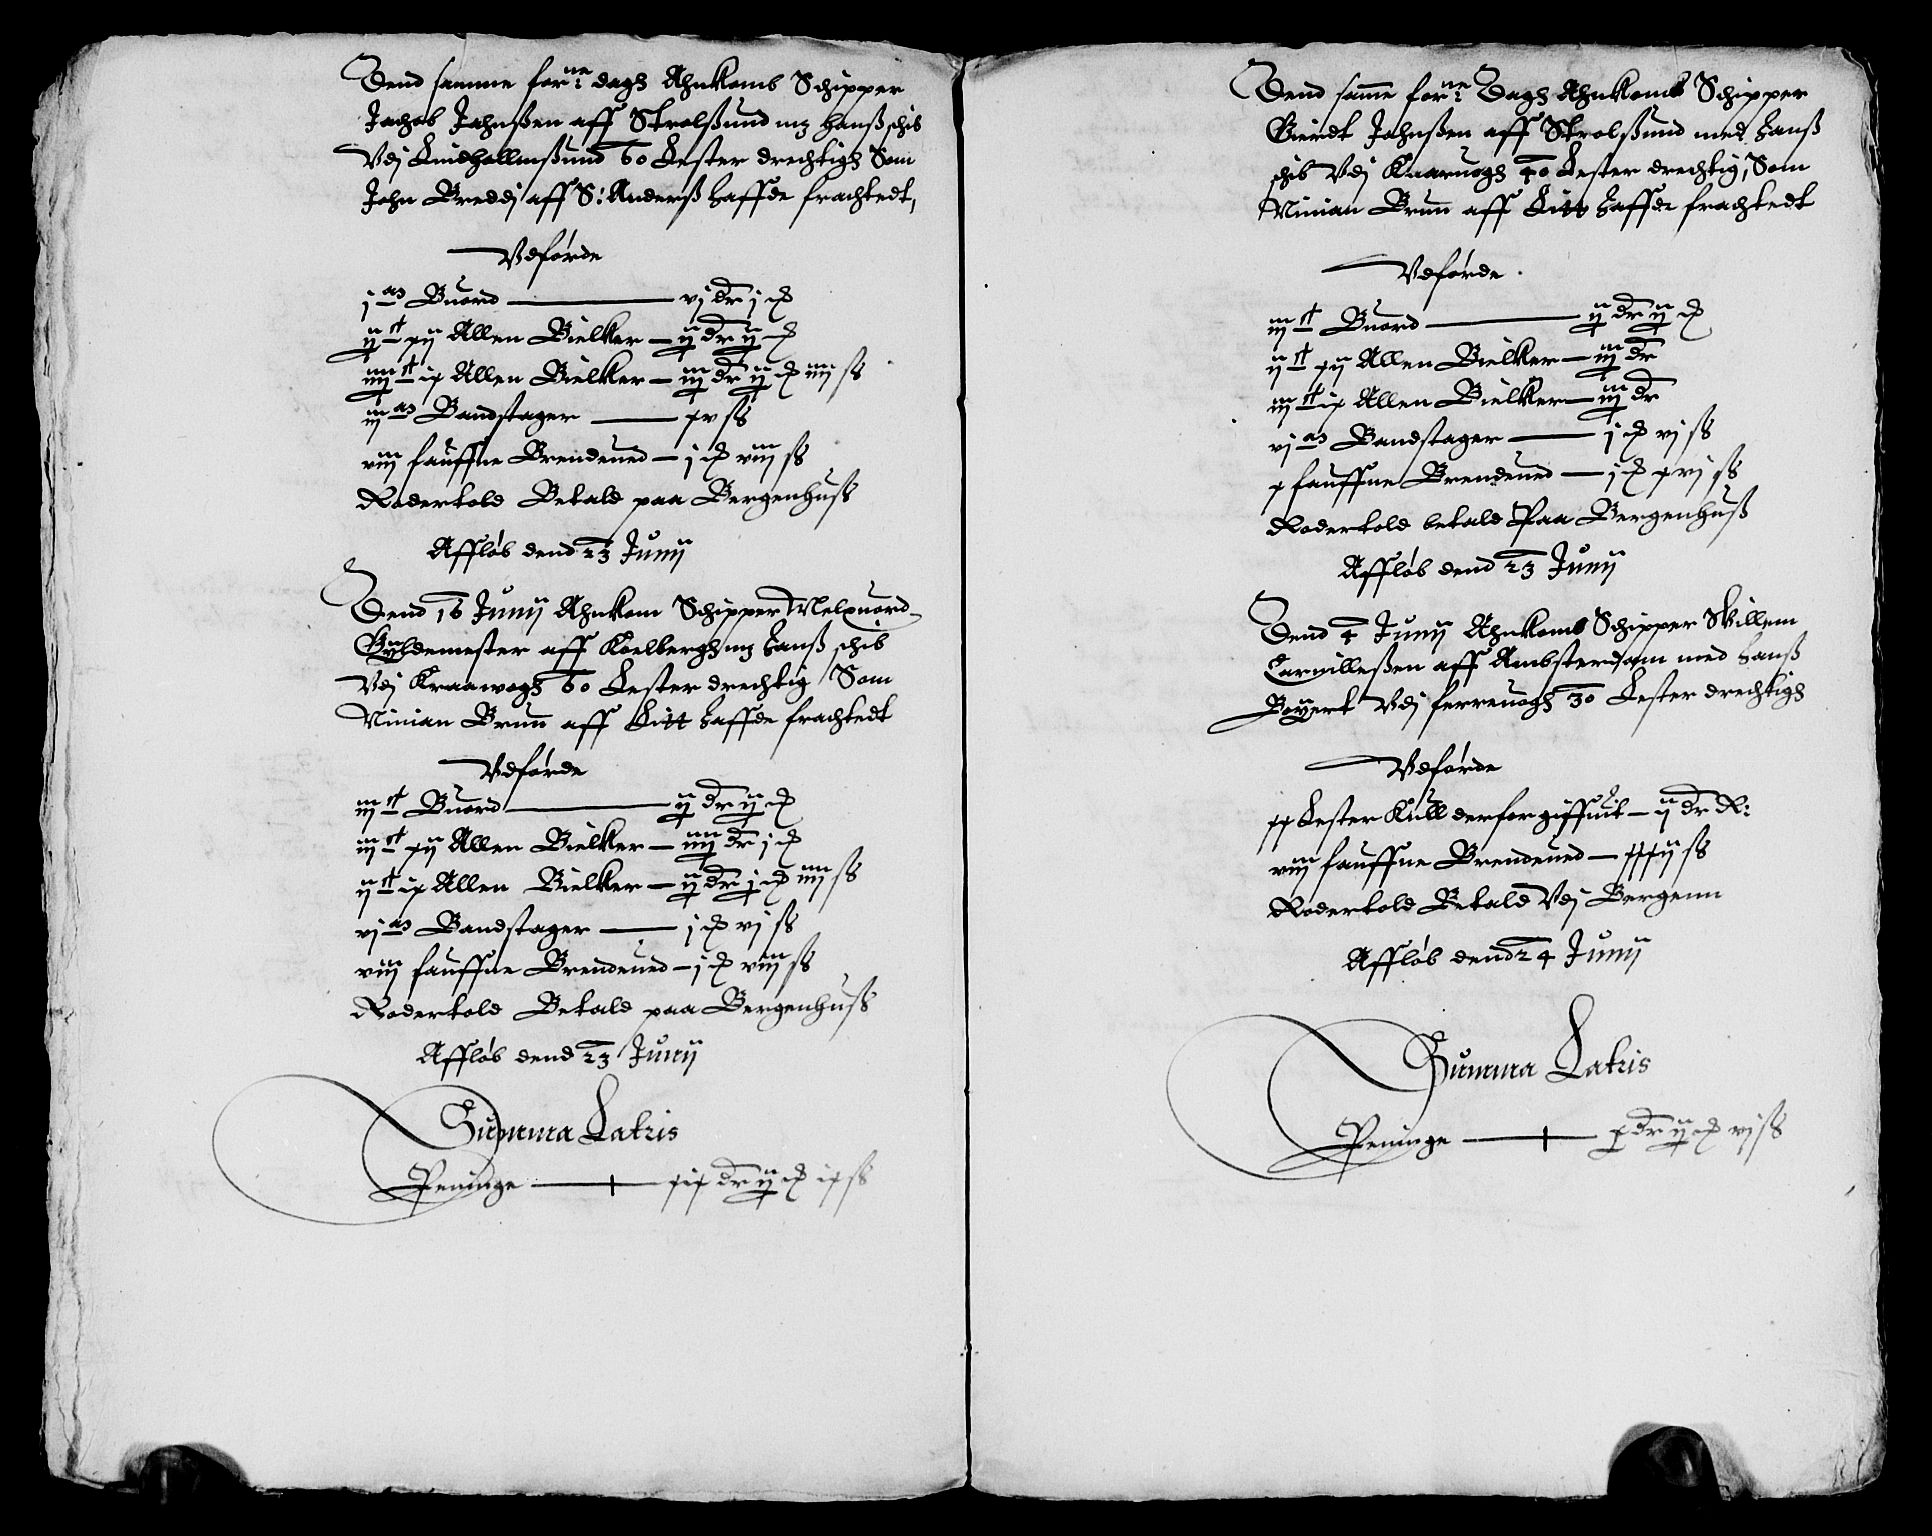 Dend samme forne: dagh Ahnkomb Schipper
Jachob Jahnßen aff Strolßund mz hanß schib
Vdj Lindhollmßund 60 Lester drechtigh Som
John Breddj aff S: Anderß haffde frachtedt,
Vdførde
j as Buord — vj dr j 
ij ct xij Allen Bielker — ij dr ij 
iiij ct ix Allen Bielker — iij dr ij  iiij ß
iij as Bandstager — xv ß
viij fauffne Brendeued — j  viij ß
Rodertold Betald paa Bergenhuß
Affløb dend 23 Junij
Dend 16 Junij Ahnkom Schipper Melxuord
Gyldemester aff Koelbergh mz hanß schib
Vdj Kraawogh 60 Lester drechtig Som
Ninian Brun aff Litt haffde frachtedt
Vdførde
iij ct Buord — ij dr ij 
iij ct xij Allen Bielker — iiij dr j 
ij ct ix Allen Bielker — ij dr j  iiij ß
vj as Bandstager — j  vj ß
viij fauffne Brendeued — j  viij ß
Rodertold Betald paa Bergenhuß
Affløb dend 23 Junij
Summa Latris
Peninge — xix dr ij  ix ß
Dend samme forne: Dagh Ahnkomb Schipper
Gierdt Johnßen aff Strolßund med hanß
schib Vdj Kaaruogh 40 Lester drechtig, Som
Ninian Brun aff Litt haffde frachtedt
Vdførde
iij ct Buord — ij dr ij 
ij ct xij Allen Bielker — iij dr
iij ct ix Allen Bielker — iij dr
vj as Bandstager — j  vj ß
x fauffne Brendeued — j  xvj ß
Rodertold betald Paa Bergenhuß
Affløb dend 23 Junij
Dend 4 Junij Ahnkomb Schipper Willem
Carnilleßen aff Ambsterdam med hanß
Boyert Vdj ferreuogh 30 Lester drechtigh
Vdførde
xx Lester Kull derfor giffuit — ij dr R:
viij fauffne Brendeued — xxxij ß
Rodertold Betald Vdj Bergenn
Affløb dend 24 Junij
Summa Latris
Peninge — x dr ij  vj ß